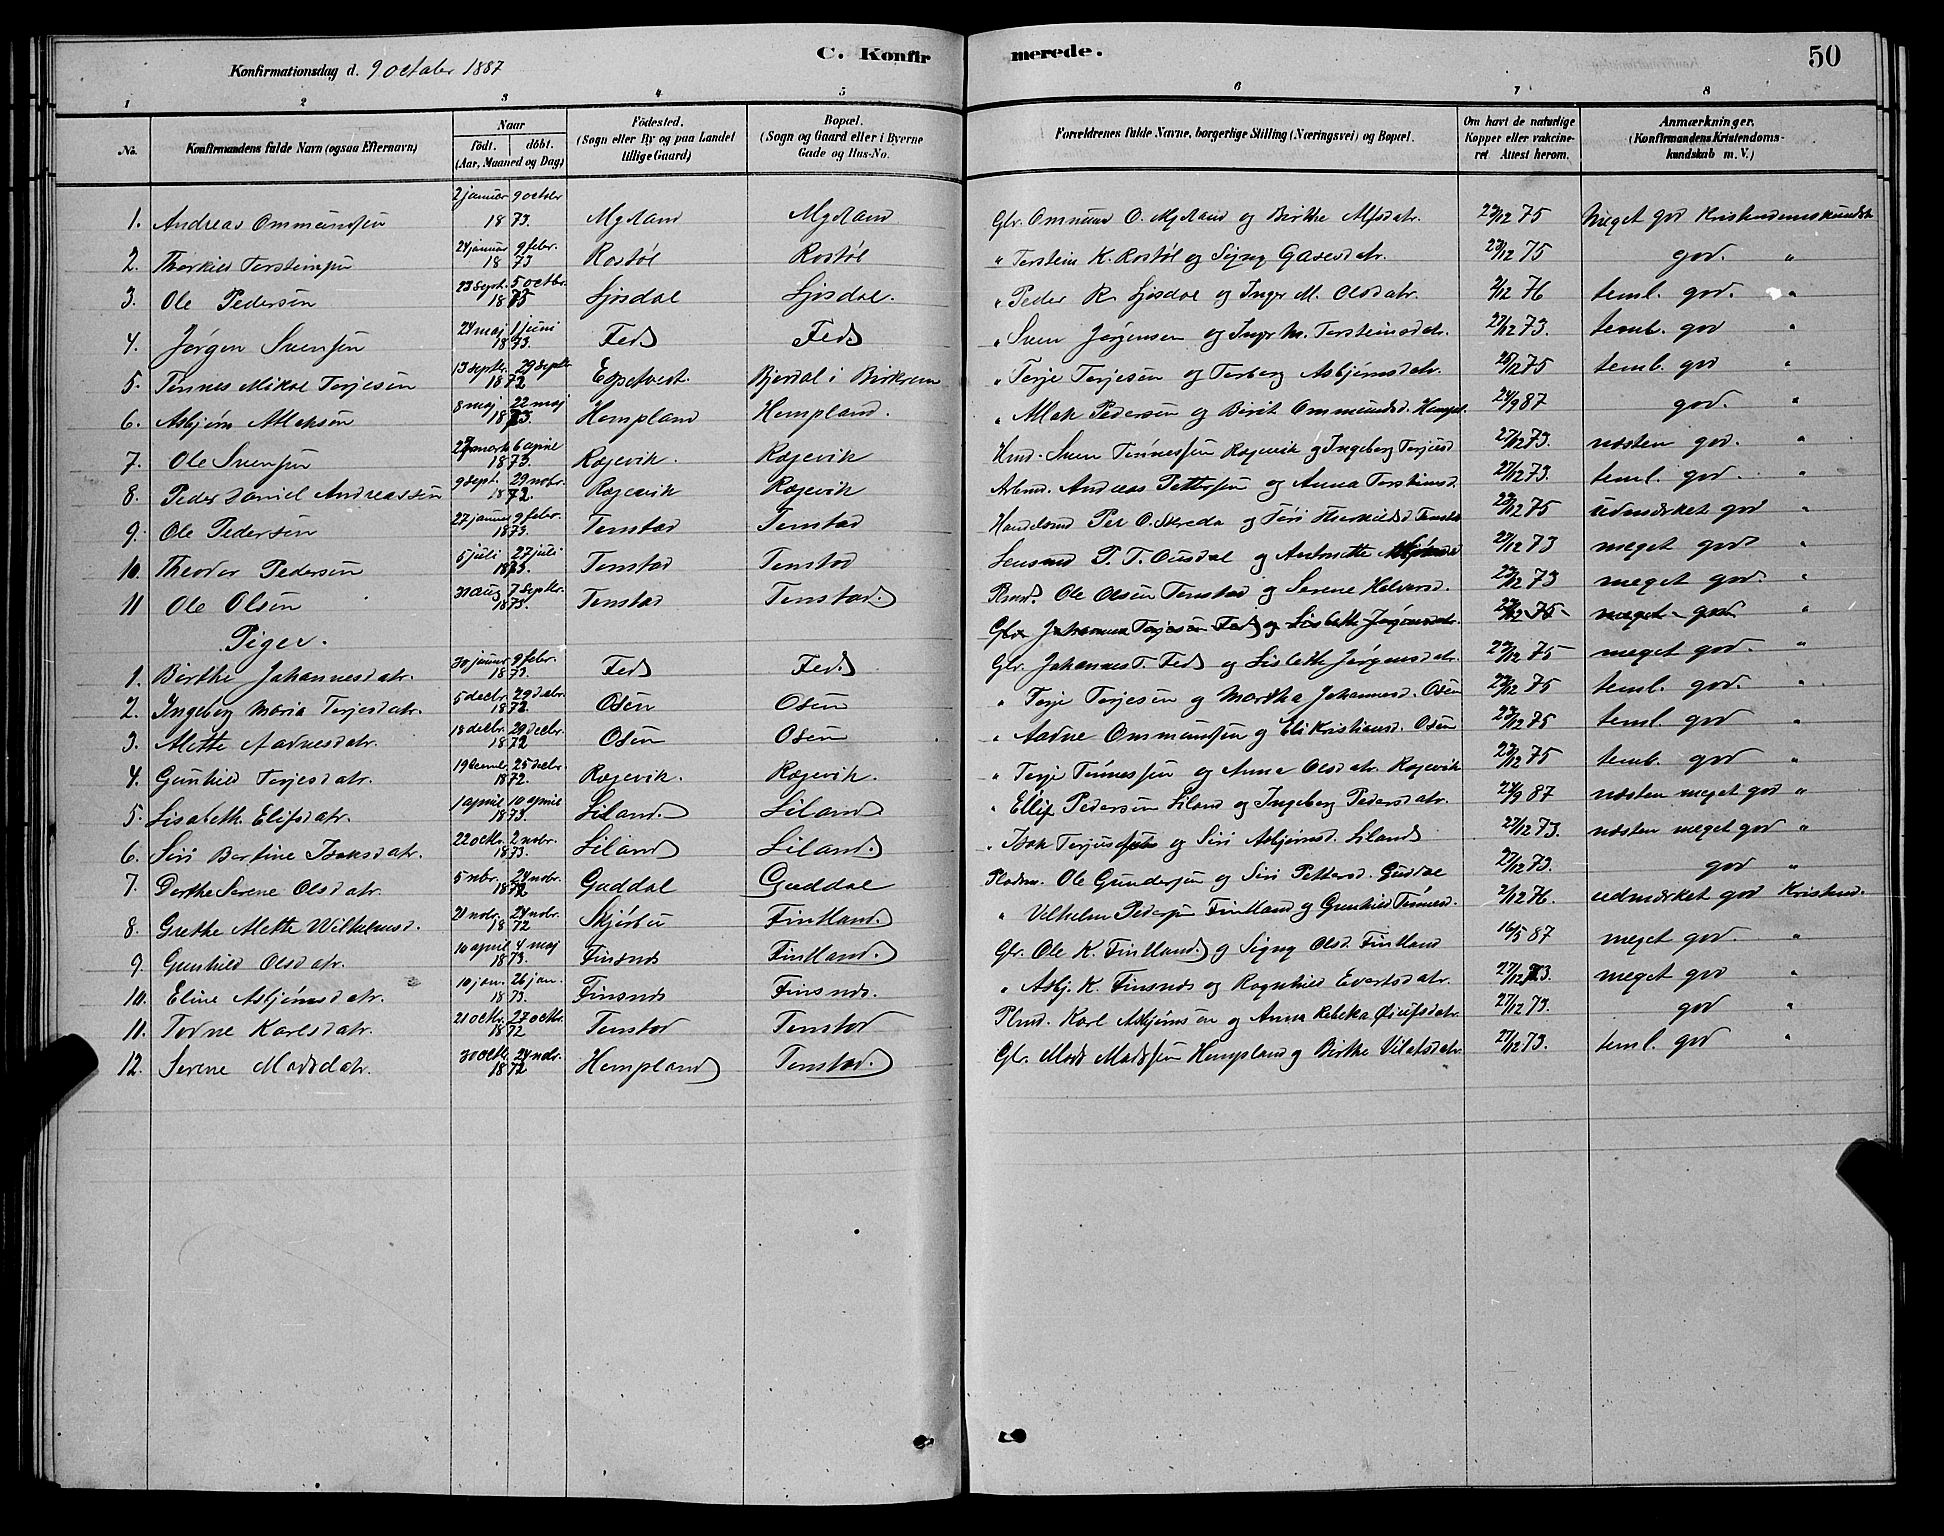 C. Konfirmerede.
50
Konfirmationsdag d. 9 october 1887
1 2 3 4 5 6 7 8
No. Konfirmandens fulde Navn (ogsaa Efternavn) Naar födt. döbt. (Aar, Maaned og Dag) Födested. (Sogn eller By og paa Landet tillige Gaard) Bopæl. (Sogn og Gaard eller i Byerne Gade og Hus-No. Forældrenes fulde Navne, borgerlige Stilling (Næringsvei) og Bopæl. Om havt de naturlige Kopper eller vakcineret Attest herom. Anmærkninger. (Konfirmandens Kristendomskundskab m. V.)
1. Andreas Ommundsen 2 januar 9 octber 1873. Mydland Mydland Gbr. Ommund O. Mydland og Birthe Alfsdatr. 75 Meget god Kristendomskundsk
2. Thorkild Torsteinsen 24 januar 9 febr. 1873 Rostøl Rostøl " Torstein K. Rostøl og Signy 23/12 75 god. "
3. Ole Pedersen 23 Sept. 5 octbr. 18 Ljosdal Ljosdal. " Peder R. Ljosdal og Inger M. Olsdatr. 2/12 76 teml. god. "
4. Jørgen Svensen 24 maj 1 juni 1873. Feds Feds " Sven Jørgensen og Ingr M. Torsteinsdatr. 27/12 73. teml. god "
5. Tønnes Mikal Terjesen 13 septbr. 29 septbr. 1872 Espetveit. Bjordal i Birkrem " Terje Terjesen og Torborg Asbjørnsdatr. 75 teml. god "
6. Asbjørn Atleksen 8 maj 22 maj 1873. Hompland Hompland. " Pedersen og Berit Ommundsd. Hompl. 24/9 87 god. "
7. Ole Svensen 6 april 1873. Røgevik. Røgevik Hmd. Sven Tønnessen Røgevik og Ingeborg Terjesd 27/12 73. næsten god. "
8. Peder Daniel Andreassen 9 sept. 29 nobr. 1872. Røgevik Røgevik Andreas Pettersen og Anna Torsteinsd. 27/12 73. teml. god. "
9. Ole Pedersen 27 januar 9 febr. 1873. Tonstad Tonstad Per O. Skreda og Tori Tonsta 75 udmærket god "
10. Theodor Pedersen 5 juli 27 juli 1873. Tonstad Tonstad Lensmd P. T. Ousdal og Antonette 27/12 73 meget god "
11 Ole Olsen 31 aug 7 Septbr. 1873. Tonstad Tonstad. Ole Olsen Tonstad og Serene Halvorsd. 73 meget god. "
Gbr Johannes Terjesen Feds og Lisbeth Jørgensdatr. 75 meget god "
Piger.
1. Birthe Johannesdatr. 30 januar 9 febr. 1873. Feds Feds. Gbr. Johannes T. Feds og Lisbeth Jørgensdatr. 75 meget god. "
2. Ingeborg Maria Terjesdatr. 5 decbr. 29 decbr. 1872. Osen Osen " Terje Terjesen og Martha Johannesd. Osen 75 teml. god. "
3. Mette Aadnesdatr. 18 decbr. 29 decbr. 1872 Osen Osen " Aadne Ommundsen og Eli Kristiansd. Osen 75 teml god "
4. Gunhild Terjesdatr. 25 decbr. 1872. Røgevik. Røgevik. " Terje Tønnessen og Anna Olsdatr. Røgevik 75 teml. god "
5. Lisabeth Elifsdatr. 1 april 10 april 1873. Liland. Liland " Ellif Pedersen Liland og Ingeborg Pedersdatr. 24/9 87 næsten meget god "
6. Siri Bertine Isaksdatr. 22 octbr. 2 nobr. 1873. Liland Liland. " Isak Terjesen og Siri Asbjørnsd. Liland 27/12 73. næsten meget god "
7. Dorthe Serene Olsdatr. 5 nbr. 24 nobr. 1872 Guddal Guddal Pladsm. Ole Gundersen og Siri Pettersd. Guddal 27/12 73. god "
8. Grethe Mette Wilhelmsd. 21 nobr. 24 nobr. 1872 Skjørbu Fintland. " Vilhelm Pedersen Fintland og Gunhild Tønnesd. 2/12 76. udmærket god Kristend.
9. Gunhild Olsdatr. 10 april 4 maj 1873. Finsnes Fintland. Gbr. Ole K. Fintland og Signy Olsd. Fintland 16/5 87 meget god. "
10. Eline Asbjørnsdatr. 10 jan. 26 jan. 1873. Finsnes Finsnes. " Asbj. K. Finsnes og Rognhild Evertsdatr. 27/12 73. meget god "
11. Todne Karlsdatr. 21 octbr. 27 octbr. 1872 Tonstad Tonstad Plmd. Karl Asbjørnsen og Anna Rebeka 27/12 73. god "
12. Serene Madsdatr. 30 octbr. 24 nobr. 1872 Hompland Tonstad. Gbr. Mads Madssen Hompland og Birthe 27/12 73. teml. god "